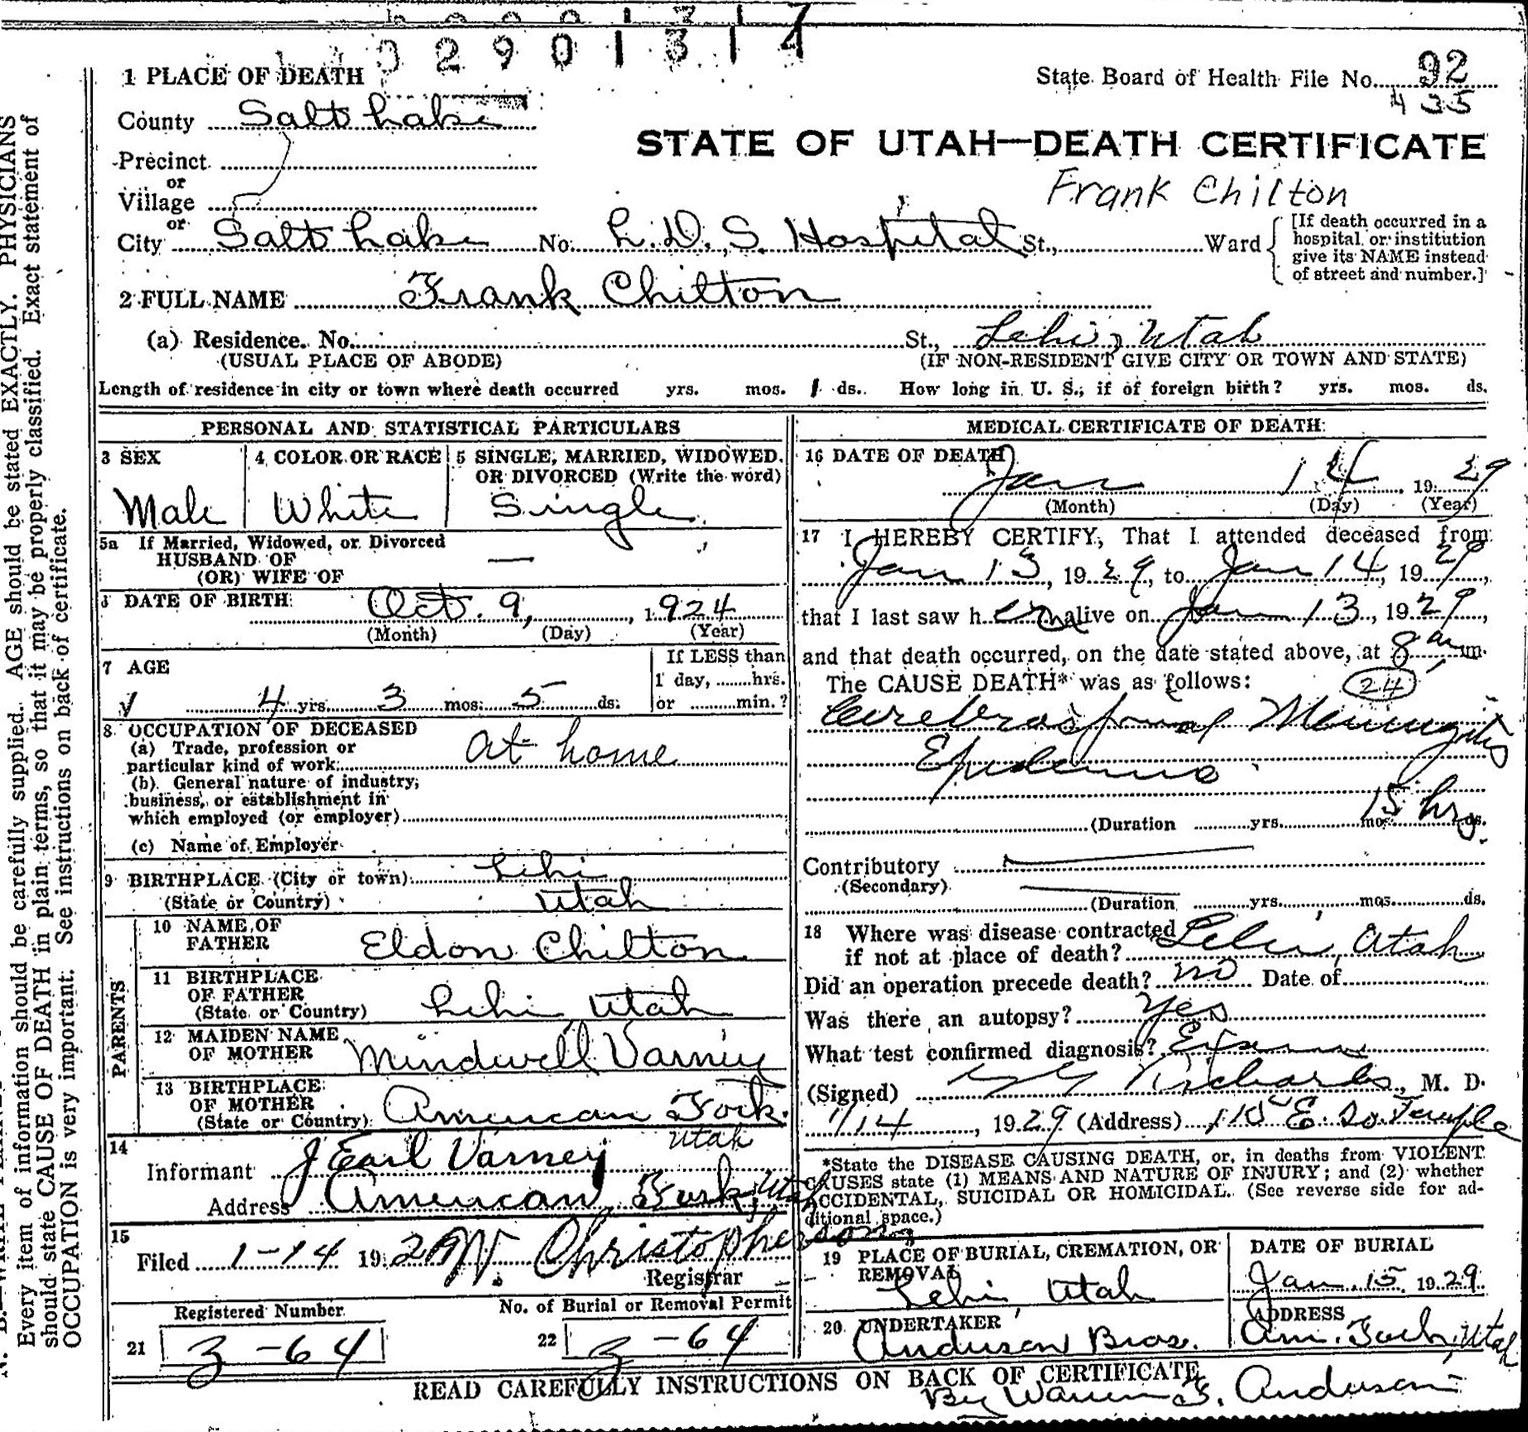 2901314
1 PLACE OF DEATH
State Board of Health File No. 92
435
County Salt Lake
STATE OF UTAH—DEATH CERTIFICATE
Precinct
or
Frank Chilton
Village
or
City Salt Lake No. L.D.S. Hospital St., Ward
[If death occurred in a
hospital or institution
give its NAME instead
of street and number.]
2 FULL NAME Frank Chilton
(a) Residence. No. St., Lehi, Utah
(USUAL PLACE OF ABODE) (IF NON-RESIDENT GIVE CITY OR TOWN AND STATE)
Length of residence in city or town where death occurred yrs. mos. 1 ds. How long in U. S., if of foreign birth? yrs. mos. ds.
PERSONAL AND STATISTICAL PARTICULARS
3 SEX
Male
4 COLOR OR RACE
White
5 SINGLE, MARRIED, WIDOWED,
OR DIVORCED (Write the word)
Single
5a If Married, Widowed, or Divorced
HUSBAND OF
(OR) WIFE OF —
6 DATE OF BIRTH Oct. 9, 1924
(Month) (Day) (Year)
7 AGE
4 yrs. 3 mos. 5 ds.
If LESS than
1 day, hrs.
or min.?
8. OCCUPATION OF DECEASED
(a) Trade, profession or
particular kind of work at home
(b) General nature of industry,
business, or establishment in
which employed (or employer)
(c) Name of Employer
9 BIRTHPLACE (City or town) Lehi
(State or Country) Utah
PARENTS
10 NAME OF
FATHER Eldon Chilton
11 BIRTHPLACE
OF FATHER
(State or Country) Lehi Utah
12 MAIDEN NAME
OF MOTHER Mindwell Varney
13 BIRTHPLACE
OF MOTHER
(State or Country) American Fork.
Utah
14
Informant J Earl Varney
Address American Fork, Utah
15
Filed 1-14 1929 W. Christopherson
Registrar
Registered Number
21 3-64
No. of Burial or Removal Permit
22 3-64
MEDICAL CERTIFICATE OF DEATH
16 DATE OF DEATH
Jan 14, 1929
(Month) (Day) (Year)
17 I HEREBY CERTIFY, That I attended deceased from
Jan 13, 1929, to Jan 14, 1929,
that I last saw h im alive on Jan 13, 1929,
and that death occurred, on the date stated above, at 8 am m.
The CAUSE DEATH* was as follows: 24
Cerebrospinal Meningitis
Epidemic
15 hrs.
(Duration yrs. mos. ds.
Contributory
(Secondary)
(Duration yrs. mos. ds.
18 Where was disease contracted
if not at place of death? Lehi, Utah
Did an operation precede death? no Date of
Was there an autopsy? Yes
What test confirmed diagnosis?
(Signed) Richards, M. D.
1/14, 1929 (Address) 115 E. So. Temple
*State the DISEASE CAUSING DEATH, or, in deaths from VIOLENT
CAUSES state (1) MEANS AND NATURE OF INJURY; and (2) whether
ACCIDENTAL, SUICIDAL OR HOMICIDAL. (See reverse side for ad-
ditional space.)
19 PLACE OF BURIAL, CREMATION, OR
REMOVAL
Lehi, Utah
DATE OF BURIAL
Jan. 15 1929.
20 UNDERTAKER
Anderson Bros.
ADDRESS
Am. Fork, Utah
READ CAREFULLY INSTRUCTIONS ON BACK OF CERTIFICATE
By Warren F. Anderson
Every item of information should be carefully supplied. AGE should be stated EXACTLY. PHYSICIANS
should state CAUSE OF DEATH in plain terms, so that it may be properly classified. Exact statement of
OCCUPATION is very important. See instructions on back of certificate.